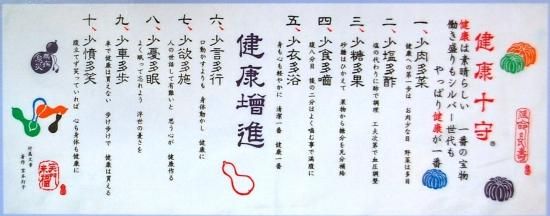 健康十守
健康は素晴らしい　一番の宝物
働き盛りもシルバー世代も
やっぱり健康が一番
一、少肉多菜
健康への第一歩は　お肉少な目　野菜は多目
二、少塩多酢
塩の代わりに酢で調理　工夫次第で血圧調整
三、少糖多果
砂糖はひかえて　果物から糖分を充分補給
四、少食多噛
腹八分目　後の二分はよく噛む事で満腹に
五、少衣多浴
身も心も軽やかに　清潔一番　健康一番
健康増進
六、少言多行
口動かすよりも　身体動かし　健康に
七、少欲多施
人の世話して有難いと　思う心が　健康作る
八、少憂多眠
よく眠って忘れよう　浮世の憂さを
九、少車多歩
車で健康は買えない　歩け歩けで　健康は買える
十、少憤多笑
腹立てず笑っていれば　心も身体も健康に